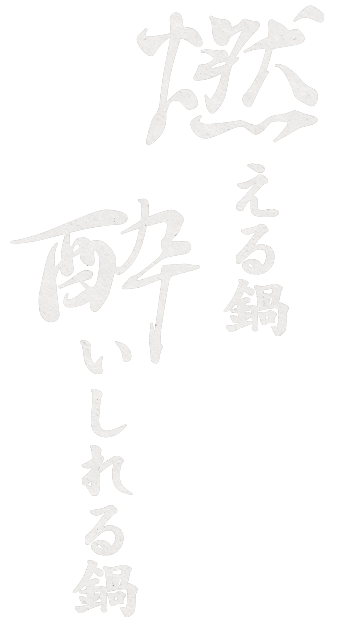 燃える鍋
酔いしれる鍋